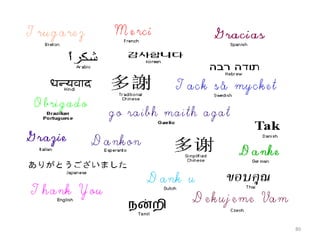 Trugarez
Breton
Merci
French
Gracias
Spanish
شكراً
Arabic
감사합니다
Korean
תודה רבה
Hebrew
धन्यवाद
Hindi
多謝
Traditional
Chinese
Tack så mycket
Swedish
Obrigado
Brazilian
Portuguese
go raibh maith agat
Gaelic
Tak
Danish
Grazie
Italian
Dankon
Esperanto
多谢
Simplified
Chinese
Danke
German
ありがとうございました
Japanese
Dank u
Dutch
ขอบคุณ
Thai
Thank You
English
நன்றி
Tamil
Dekujeme Vam
Czech
80